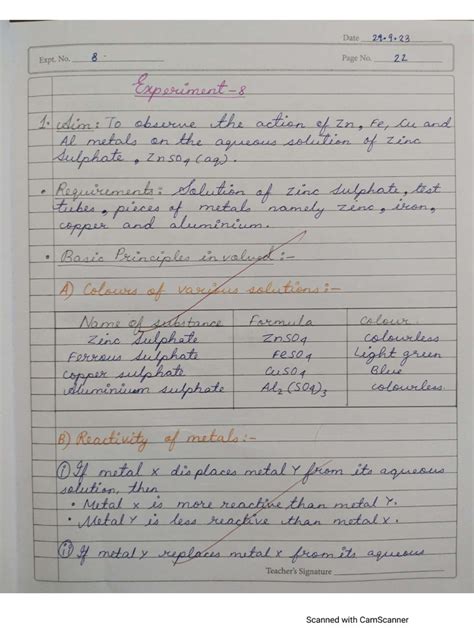 Date 29.9.23
Expt. No. 8
Page No. 22
Experiment-8
1. Aim: To observe the action of Zn, Fe, Cu and
Al metals on the aqueous solution of Zinc
Sulphate, ZnSO4 (aq).
• Requirements: Solution of zinc sulphate, test
tubes, pieces of metals namely zinc, iron,
copper and aluminium.
• Basic Principles involved :-
A) Colours of various solutions:-
Name of substance Formula Colour
Zinc Sulphate ZnSO4 colourless
Ferrous Sulphate FeSO4 Light green
Copper sulphate CuSO4 Blue
Aluminium sulphate Al2(SO4)3 colourless
B) Reactivity of metals:-
(i) If metal X displaces metal Y from its aqueous
solution, then
• Metal X is more reactive than metal Y.
• Metal Y is less reactive than metal X.
(ii) If metal Y replaces metal X from its aqueous
Teacher's Signature
Scanned with CamScanner